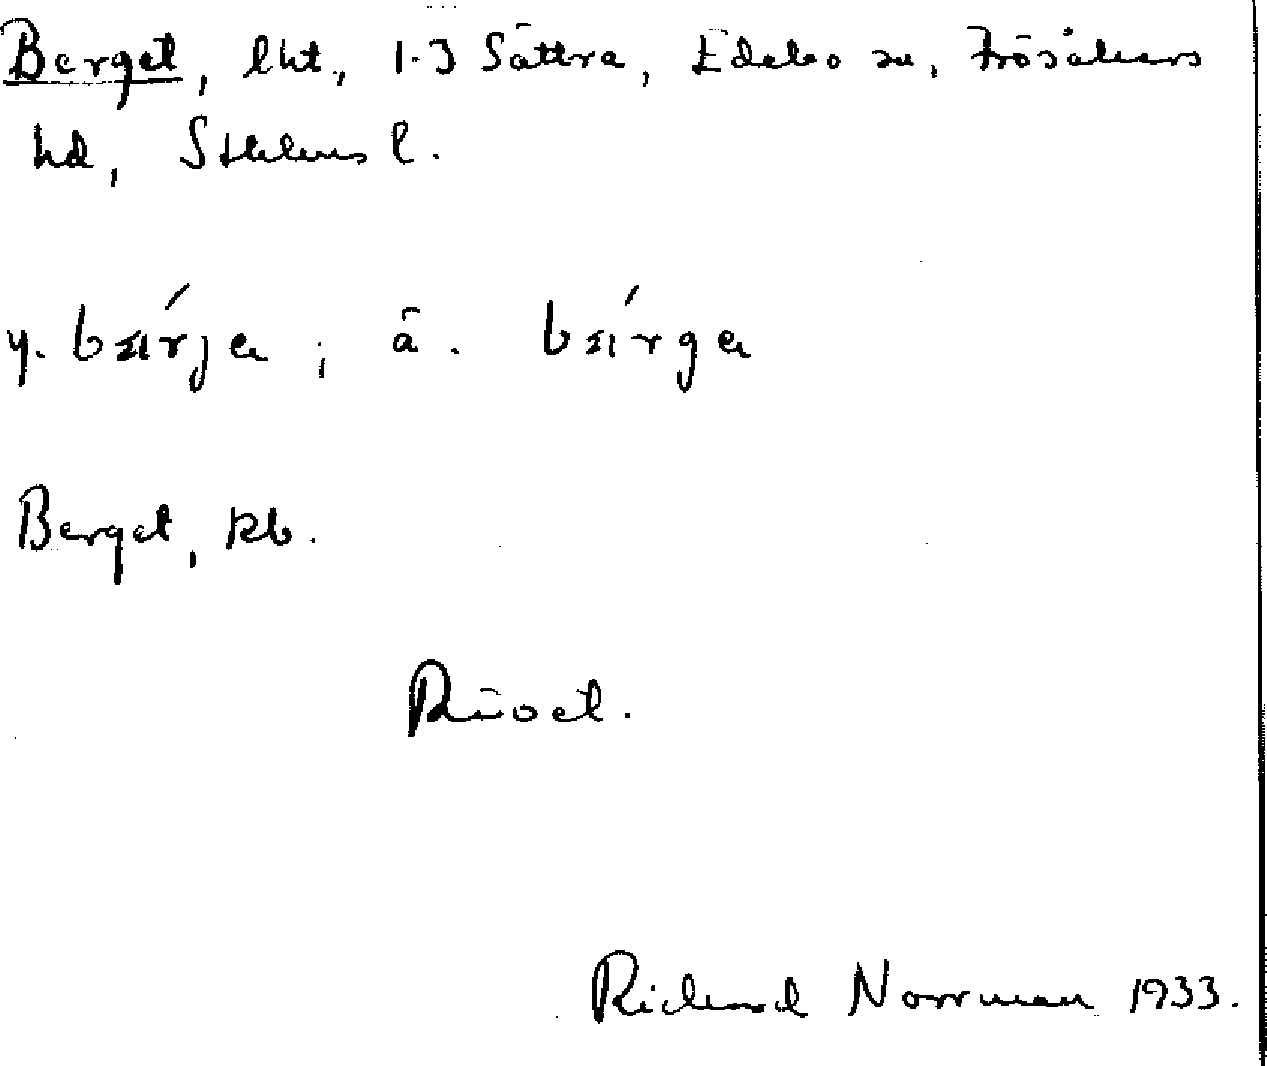 Berget, lht, 1-3 Sättra, Edebo sn, Frösåkers
hd, Sthlms l.
y. bæ̂rja ; ä. bæ̂rga
Berget, kb.
Rivet.
Richard Norrman 1933.